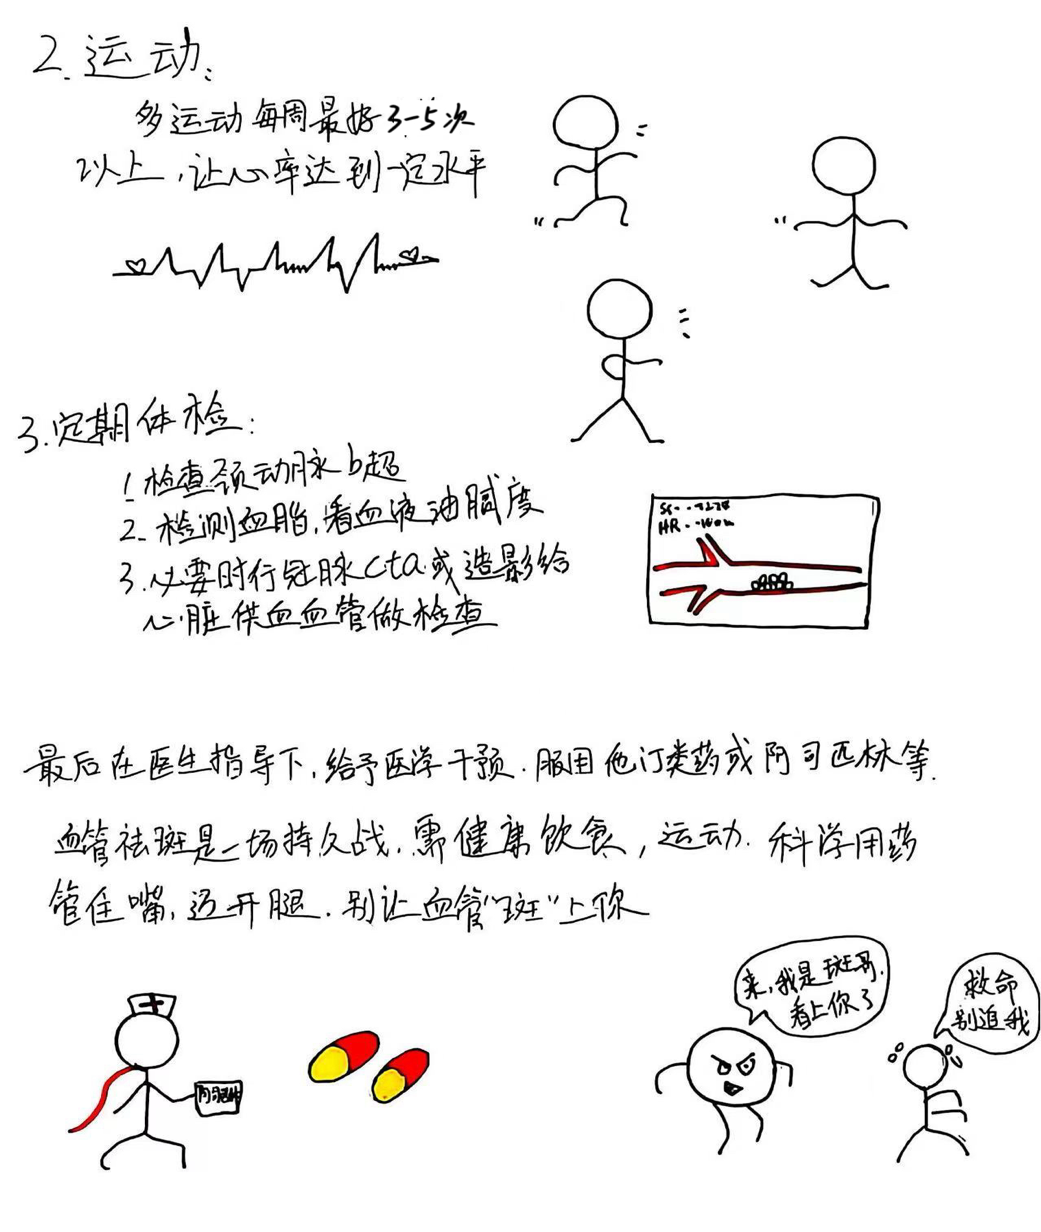 2.运动:
多运动每周最好3-5次
以上,让心率达到一定水平
3.定期体检:
1.检查颈动脉b超
2.检测血脂,看血液油腻度
3.必要时行冠脉cta或造影给
心脏供血血管做检查
HR
最后在医生指导下,给予医学干预.服用他汀类药或阿司匹林等.
血管祛斑是一场持久战,需健康饮食,运动.科学用药
管住嘴,迈开腿.别让血管“斑”上你
来,我是斑哥.
看上你了
救命
别追我
阿司匹林